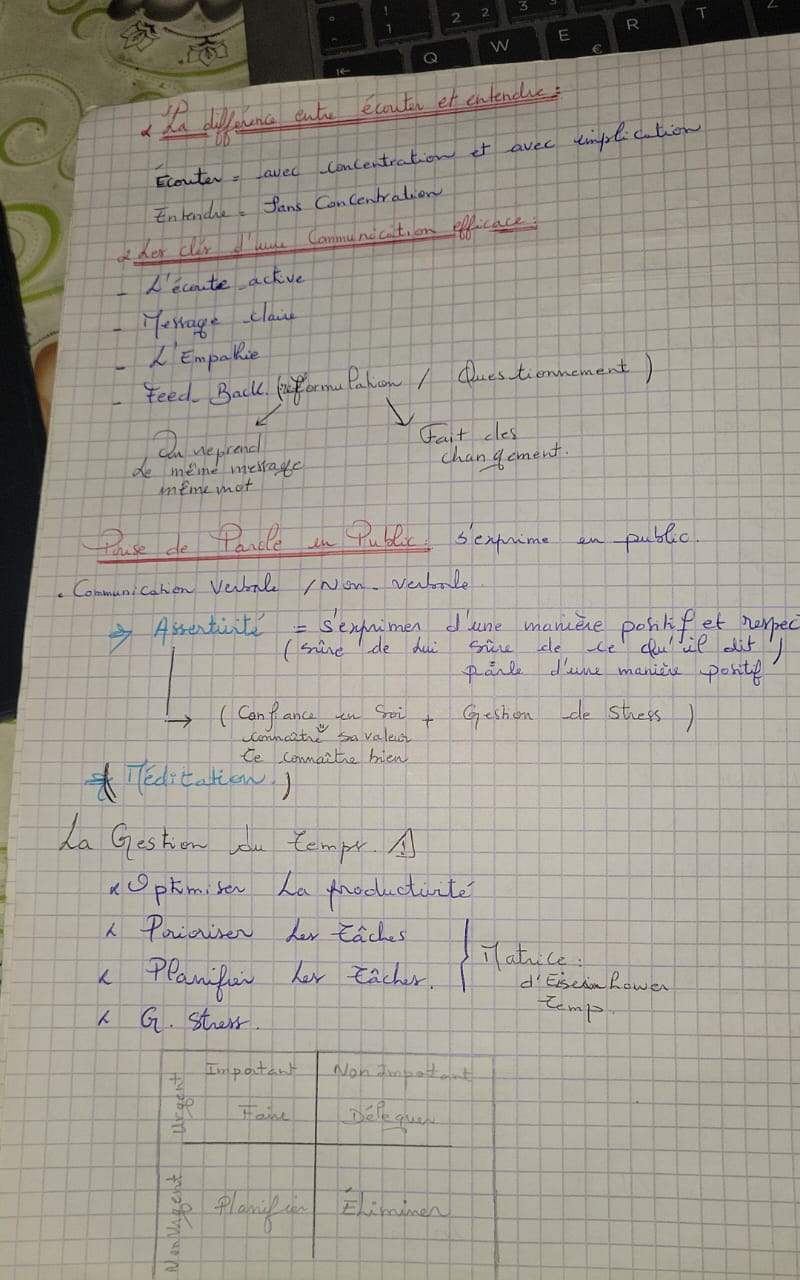 La différence entre écouter et entendre :
Écouter = avec concentration et avec implication
Entendre = Sans Concentration
Les clés d'une Communication efficace :
- L'écoute active
- Message claire
- L'Empathie
- Feed-Back (reformulation / Questionnement)
On reprend
le même message
même mot
Fait des
changement.
Prise de Parole en Public : s'exprime en public.
. Communication Verbale / Non-verbale
→ Assertivité = s'exprimer d'une manière positif et respec
(sûre de lui sûre de ce qu'il dit)
parle d'une manière positif
→ (Confiance en Soi + Gestion de Stress)
connaître sa valeur
te connaître bien
Méditation.)
La Gestion du temps.
Optimiser la productivité
Prioriser les tâches
Planifier les tâches.
G. Stress.
Matrice :
d'Eisenhower
temp.
Important
Non Important
Urgent
Faire
Déléguer
Non Urgent
Planifier
Éliminer
Q W E R T
€
! 1 2 2 3